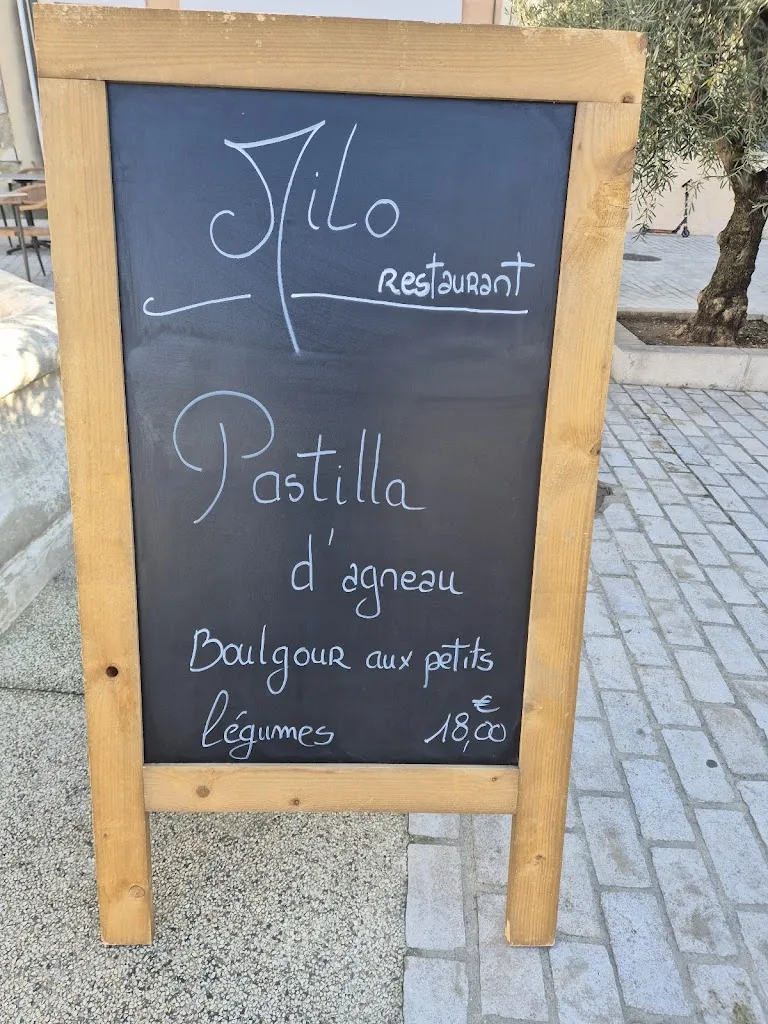 Milo
Restaurant
Pastilla
d'agneau
Boulgour aux petits
légumes 18,00 €